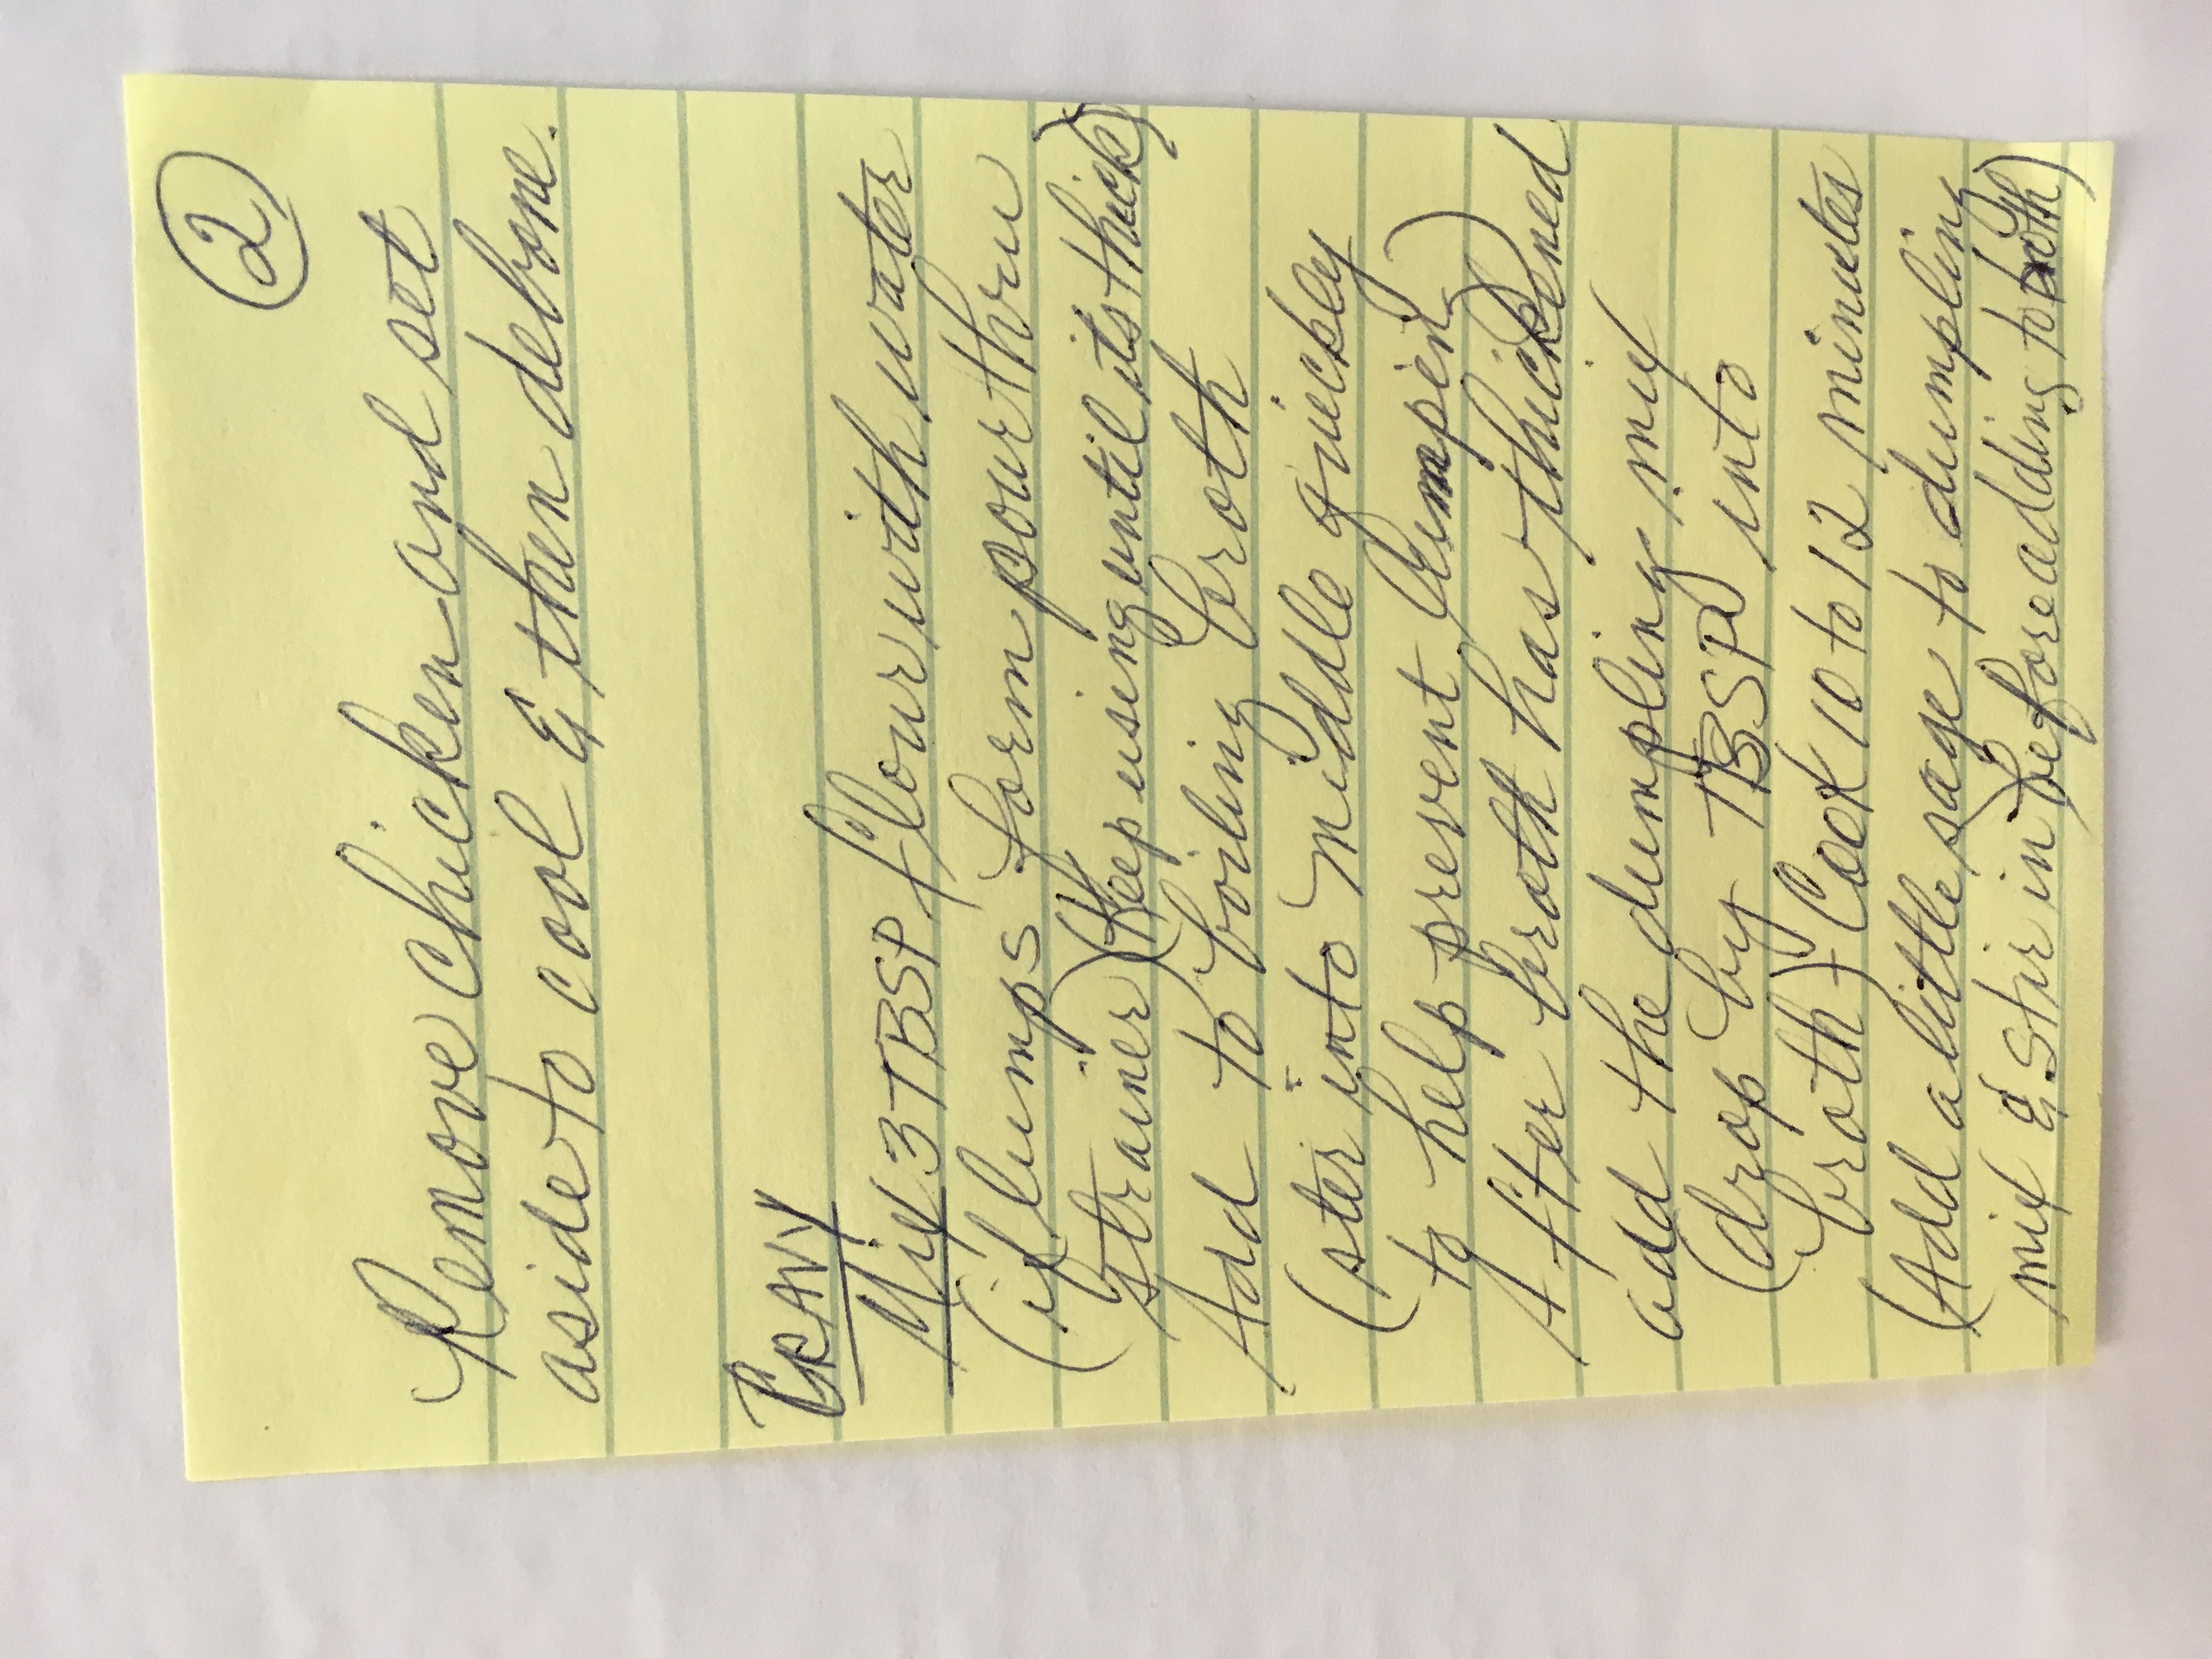 2
Remove chicken and set
aside to cool & then debone.
GRAVY
Mix 3 TBSP flour with water
(if lumps form pour thru
strainer) (Keep using until its thick)
Add to boiling broth
(ster into middle quickley
to help prevent lumpien)
After broth has thickened
add the dumpling mix
(drop by TBSP into
broth) - Cook 10 to 12 minutes
(Add a little sage to dumpling
mix & stir in before adding to broth)